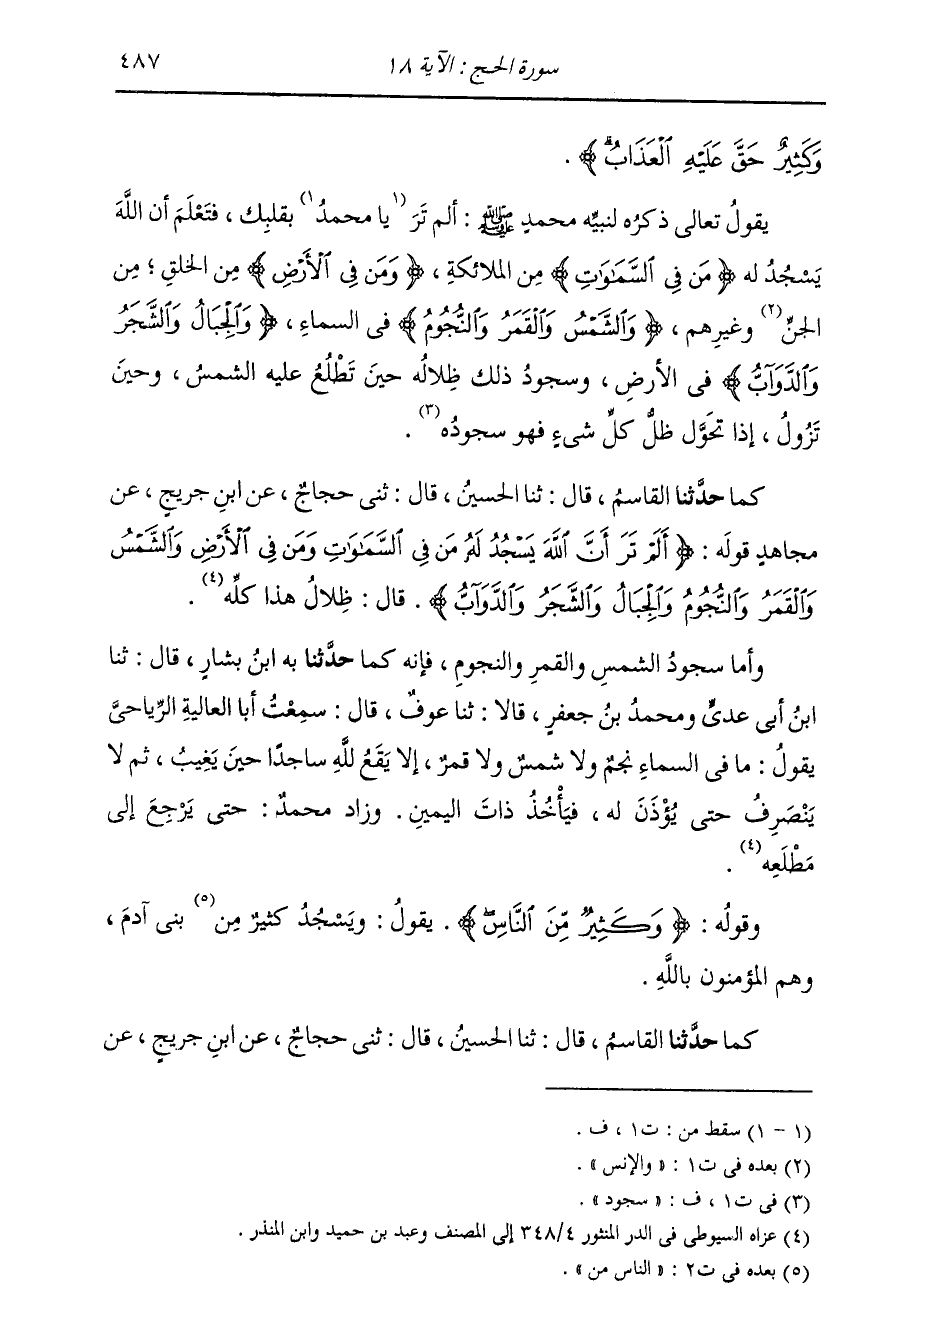 سورة الحج : الآية ١٨ ٤٨٧
وَكَثِيرٌ حَقَّ عَلَيْهِ ٱلْعَذَابُ ۗ﴾ .
يقولُ تعالى ذكرُه لنبيِّه محمدٍ ﷺ : ألم تَرَ (١ يا محمدُ ١) بقلبِك ، فتَعْلَمَ أن اللَّهَ
يَسْجُدُ له ﴿ مَن فِى ٱلسَّمَٰوَٰتِ ﴾ مِن الملائكةِ ، ﴿ وَمَن فِى ٱلْأَرْضِ ﴾ مِن الخلقِ ؛ مِن
الجنِّ (٢) وغيرِهم ، ﴿ وَٱلشَّمْسُ وَٱلْقَمَرُ وَٱلنُّجُومُ ﴾ فى السماءِ ، ﴿ وَٱلْجِبَالُ وَٱلشَّجَرُ
وَٱلدَّوَآبُّ ﴾ فى الأرضِ ، وسجودُ ذلك ظِلالُه حينَ تَطْلُعُ عليه الشمسُ ، وحينَ
تَزُولُ ، إذا تحَوَّل ظلُّ كلِّ شىءٍ فهو سجودُه (٣) .
كما حدَّثنا القاسمُ ، قال : ثنا الحسينُ ، قال : ثنى حجاجٌ ، عن ابنِ جريجٍ ، عن
مجاهدٍ قولَه : ﴿ أَلَمْ تَرَ أَنَّ ٱللَّهَ يَسْجُدُ لَهُۥ مَن فِى ٱلسَّمَٰوَٰتِ وَمَن فِى ٱلْأَرْضِ وَٱلشَّمْسُ
وَٱلْقَمَرُ وَٱلنُّجُومُ وَٱلْجِبَالُ وَٱلشَّجَرُ وَٱلدَّوَآبُّ ﴾ . قال : ظِلالُ هذا كلِّه (٤) .
وأما سجودُ الشمسِ والقمرِ والنجومِ ، فإنه كما حدَّثنا به ابنُ بشارٍ ، قال : ثنا
ابنُ أبى عدىٍّ ومحمدُ بنُ جعفرٍ ، قالا : ثنا عوفٌ ، قال : سمِعْتُ أبا العاليةِ الرِّياحىَّ
يقولُ : ما فى السماءِ نجمٌ ولا شمسٌ ولا قمرٌ ، إلا يَقَعُ للَّهِ ساجدًا حينَ يَغِيبُ ، ثم لا
يَنْصَرِفُ حتى يُؤْذَنَ له ، فيَأْخُذُ ذاتَ اليمينِ . وزاد محمدٌ : حتى يَرْجِعَ إلى
مَطْلَعِه (٤) .
وقولُه : ﴿ وَكَثِيرٌ مِّنَ ٱلنَّاسِ ۖ﴾ . يقولُ : ويَسْجُدُ كثيرٌ مِن (٥) بنى آدمَ ،
وهم المؤمنون باللَّهِ .
كما حدَّثنا القاسمُ ، قال : ثنا الحسينُ ، قال : ثنى حجاجٌ ، عن ابنِ جريجٍ ، عن
(١ - ١) سقط من : ت١ ، ف .
(٢) بعده فى ت١ : « والإنس » .
(٣) فى ت١ ، ف : « سجود » .
(٤) عزاه السيوطى فى الدر المنثور ٣٤٨/٤ إلى المصنف وعبد بن حميد وابن المنذر .
(٥) بعده فى ت٢ : « الناس من » .